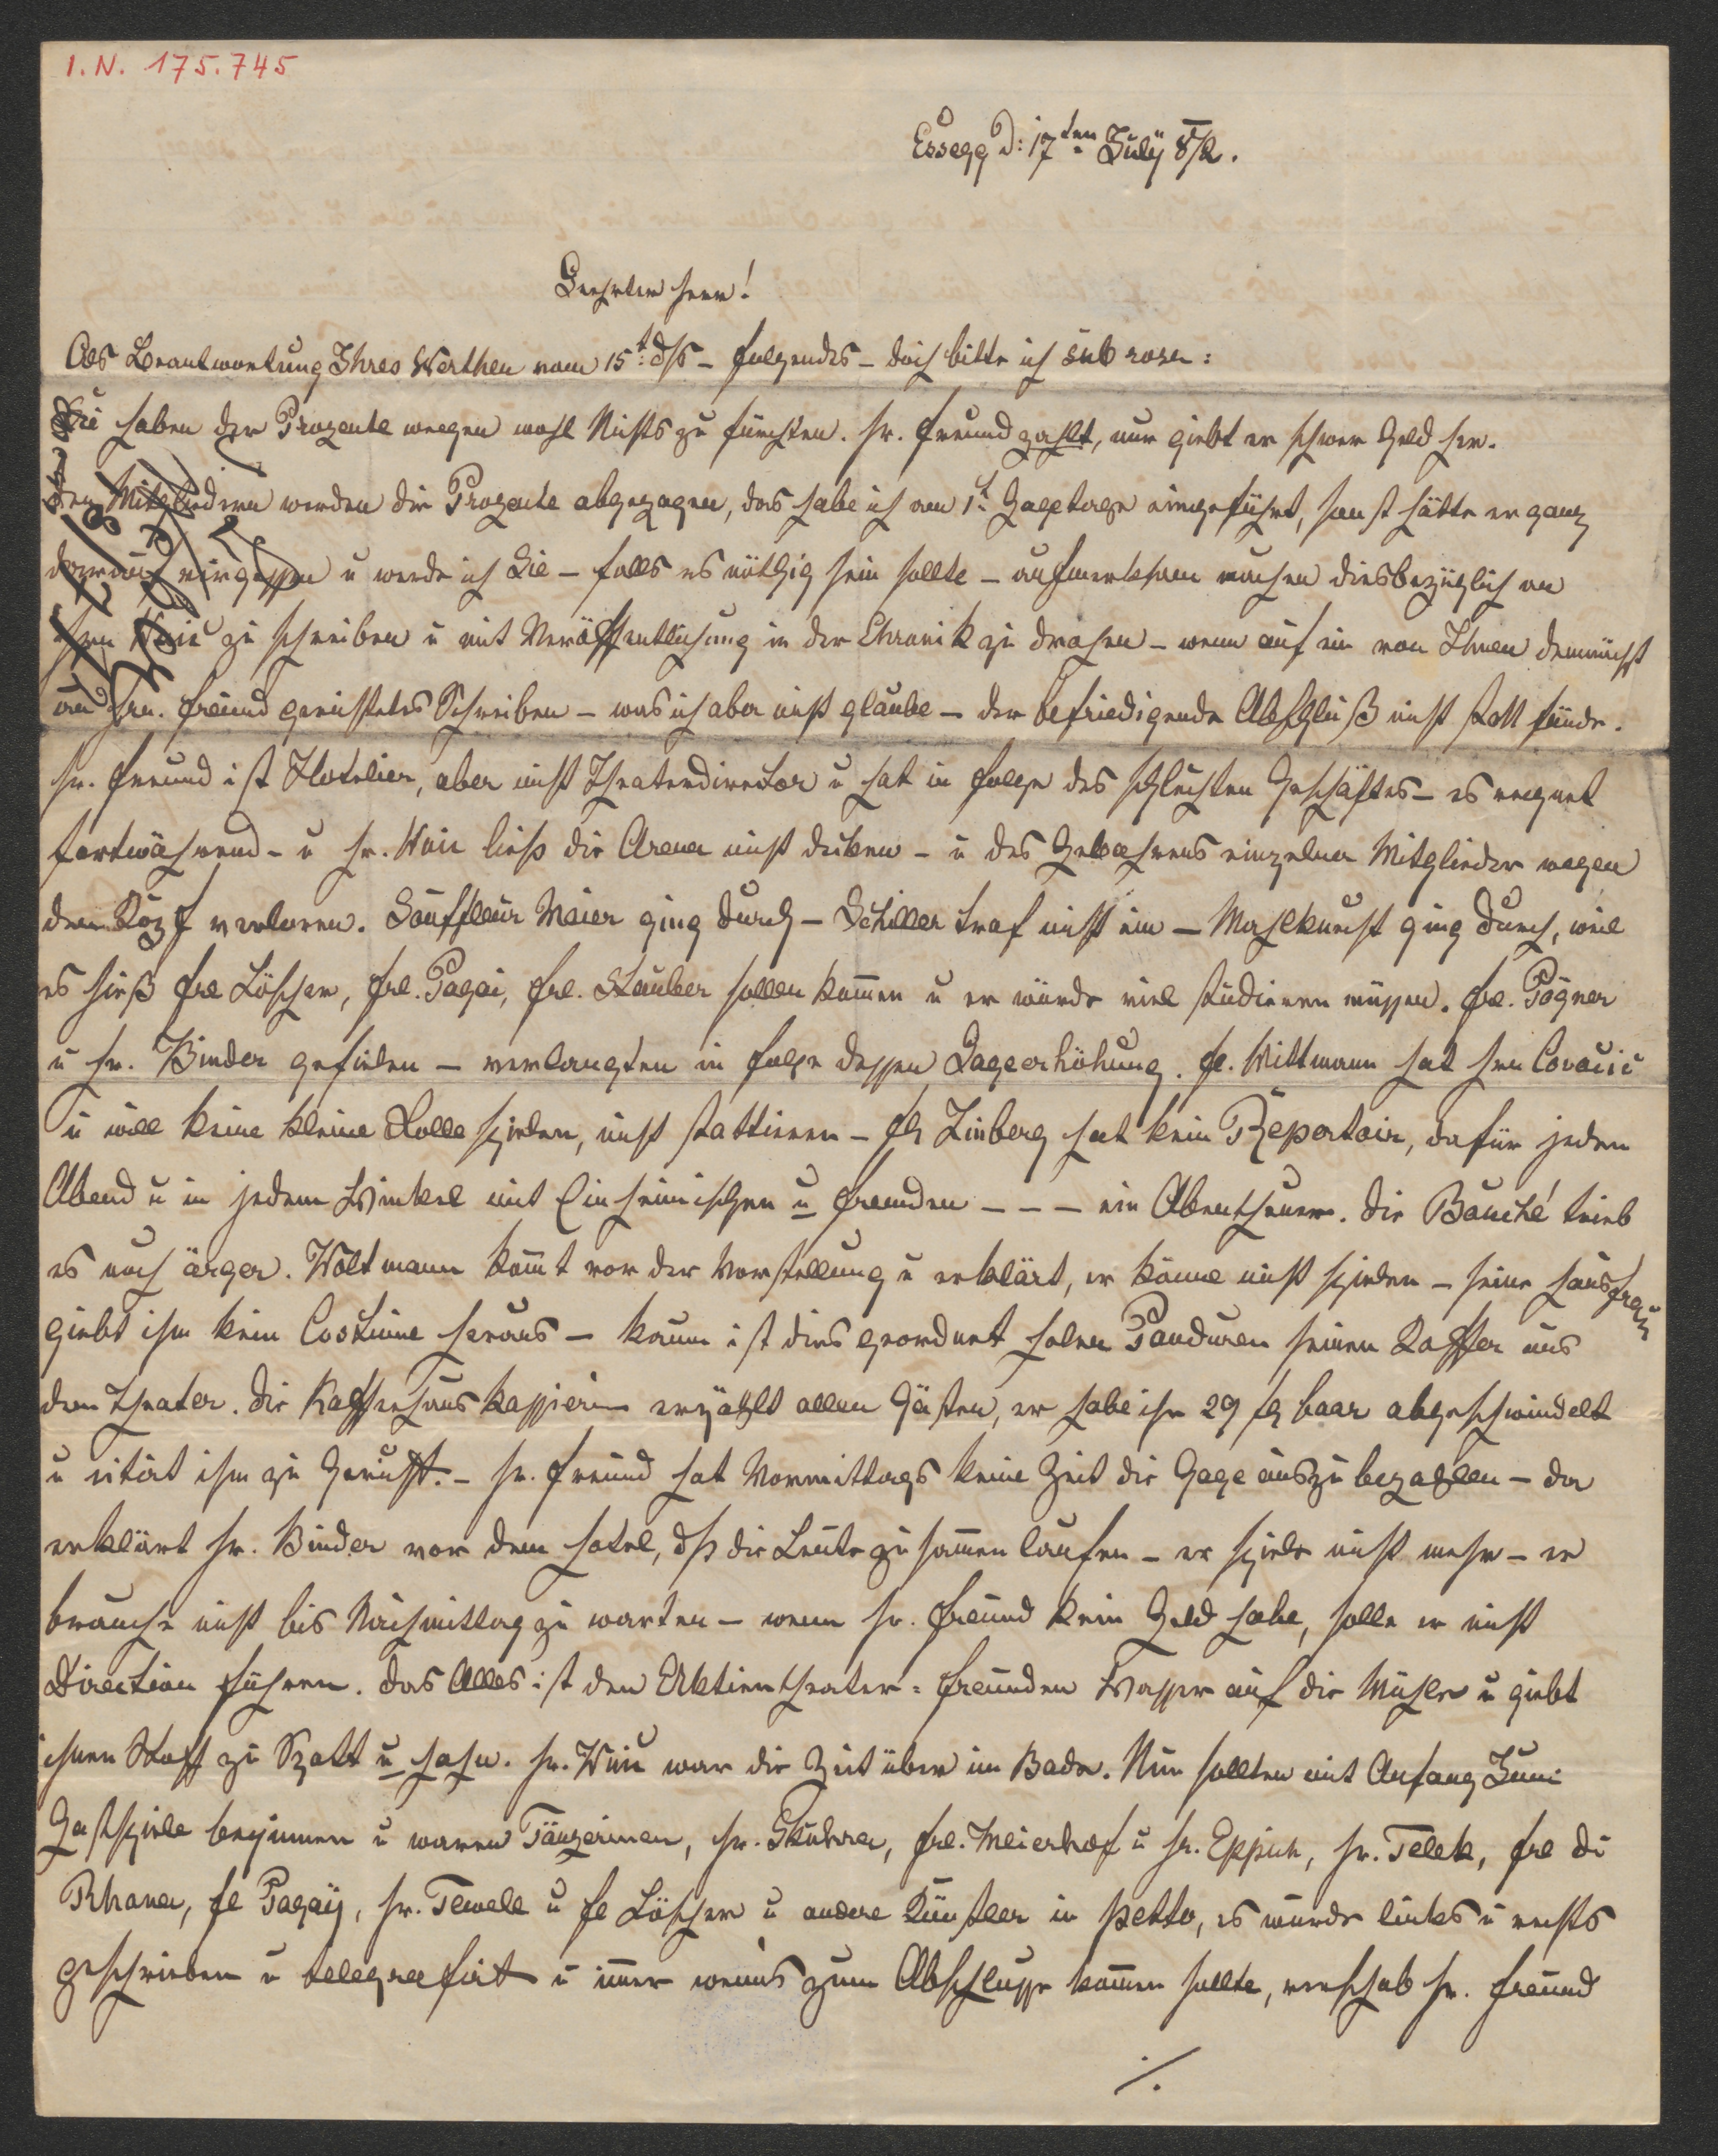 I.N. 175.745
Essegg d: 17ten July 8/2.
Geehrter Herr!
Als Beantwortung Ihres Werthen vom 15t d/s – folgendes – doch bitte ich sub rosa:
Sie haben der Prozente wegen wohl Nichts zu fürchten. Hr. Freund zahlt, nur giebt er schwer Geld her.
Den Mitgliedern werden die Prozente abgezogen, das habe ich am 1t Gagetage eingeführt, sonst hätte er ganz
darauf vergessen u werde ich Sie – falls es nöthig sein sollte – aufmerksam machen diesbezüglich an
Hrn zu schreiben u mit Veröffentlichung in der Chronik zu drohen – wenn auf ein von Ihnen demnächst
an Hrn. Freund gerichtetes Schreiben – was ich aber nicht glaube – der befriedigende Abschluß nicht statt fände.
Hr. Freund ist Hotelier, aber nicht Theaterdirector u hat in Folge des schlechten Geschäftes – es regnet
fortwährend – u Hr. ließ die Arena nicht decken – u des Gebahrens einzelner Mitglieder wegen
den Kopf verloren. Souffleur Maier ging durch – Schiller traf nicht ein – Mahlknecht ging durch, weil
es hieß Frl Löscher, Frl. Pagai, Frl. Stauber sollen kommen u er würde viel studieren müssen. Frl. Pögner
u Hr. Binder gefielen – verlangten in Folge dessen Gageerhöhung. Fr. Wittmann hat Hrn Covacic
u will keine kleine Rolle spielen, nicht stattieren – Frl Linberg hat kein Repertoir, dafür jeden
Abend u in jedem Winkel mit Einheimischen u Fremden – – – ein Abentheuer. Die Bauché trieb
es noch ärger. Woltmann kömt vor der Vorstellung u erklärt, er könne nicht spielen – seine Hausfrau
giebt ihm kein Costüme heraus – kaum ist dies geordnet holen Panduren seinen Koffer aus
dem Theater. Die Kaffeehauskassierin erzählt allen Gästen, er habe ihr 29 fl baar abgeschwindelt
u citirt ihn zu Gericht. – Hr. Freund hat Vormittags keine Zeit die Gage auszubezahlen – da
erklärt Hr. Binder vor dem Hotel, dß die Leute zusamen laufen – er spiele nicht mehr – er
brauche nicht bis Nachmittag zu warten – wenn Hr. Freund kein Geld habe, solle er nicht
Direction führen. Das Alles ist den Aktientheater-Freunden Wasser auf die Mühle u giebt
ihnen Stoff zu Spott u Hohn. Hr. war die Zeit über im Bade. Nun sollten mit Anfang Juni
Gastspiele beginnen u waren Tänzerinen, Hr. , Frl. Meierhof u Hr. Eppich, Hr. Telek, Frl di
Rhona, Fl Pagay, Hr. Tewele u Fl Löscher u andere Künstler in petto, es wurde links u rechts
geschrieben u telegrafirt u imer wenns zum Abschlusse komen sollte, verschob Hr. Freund
./.